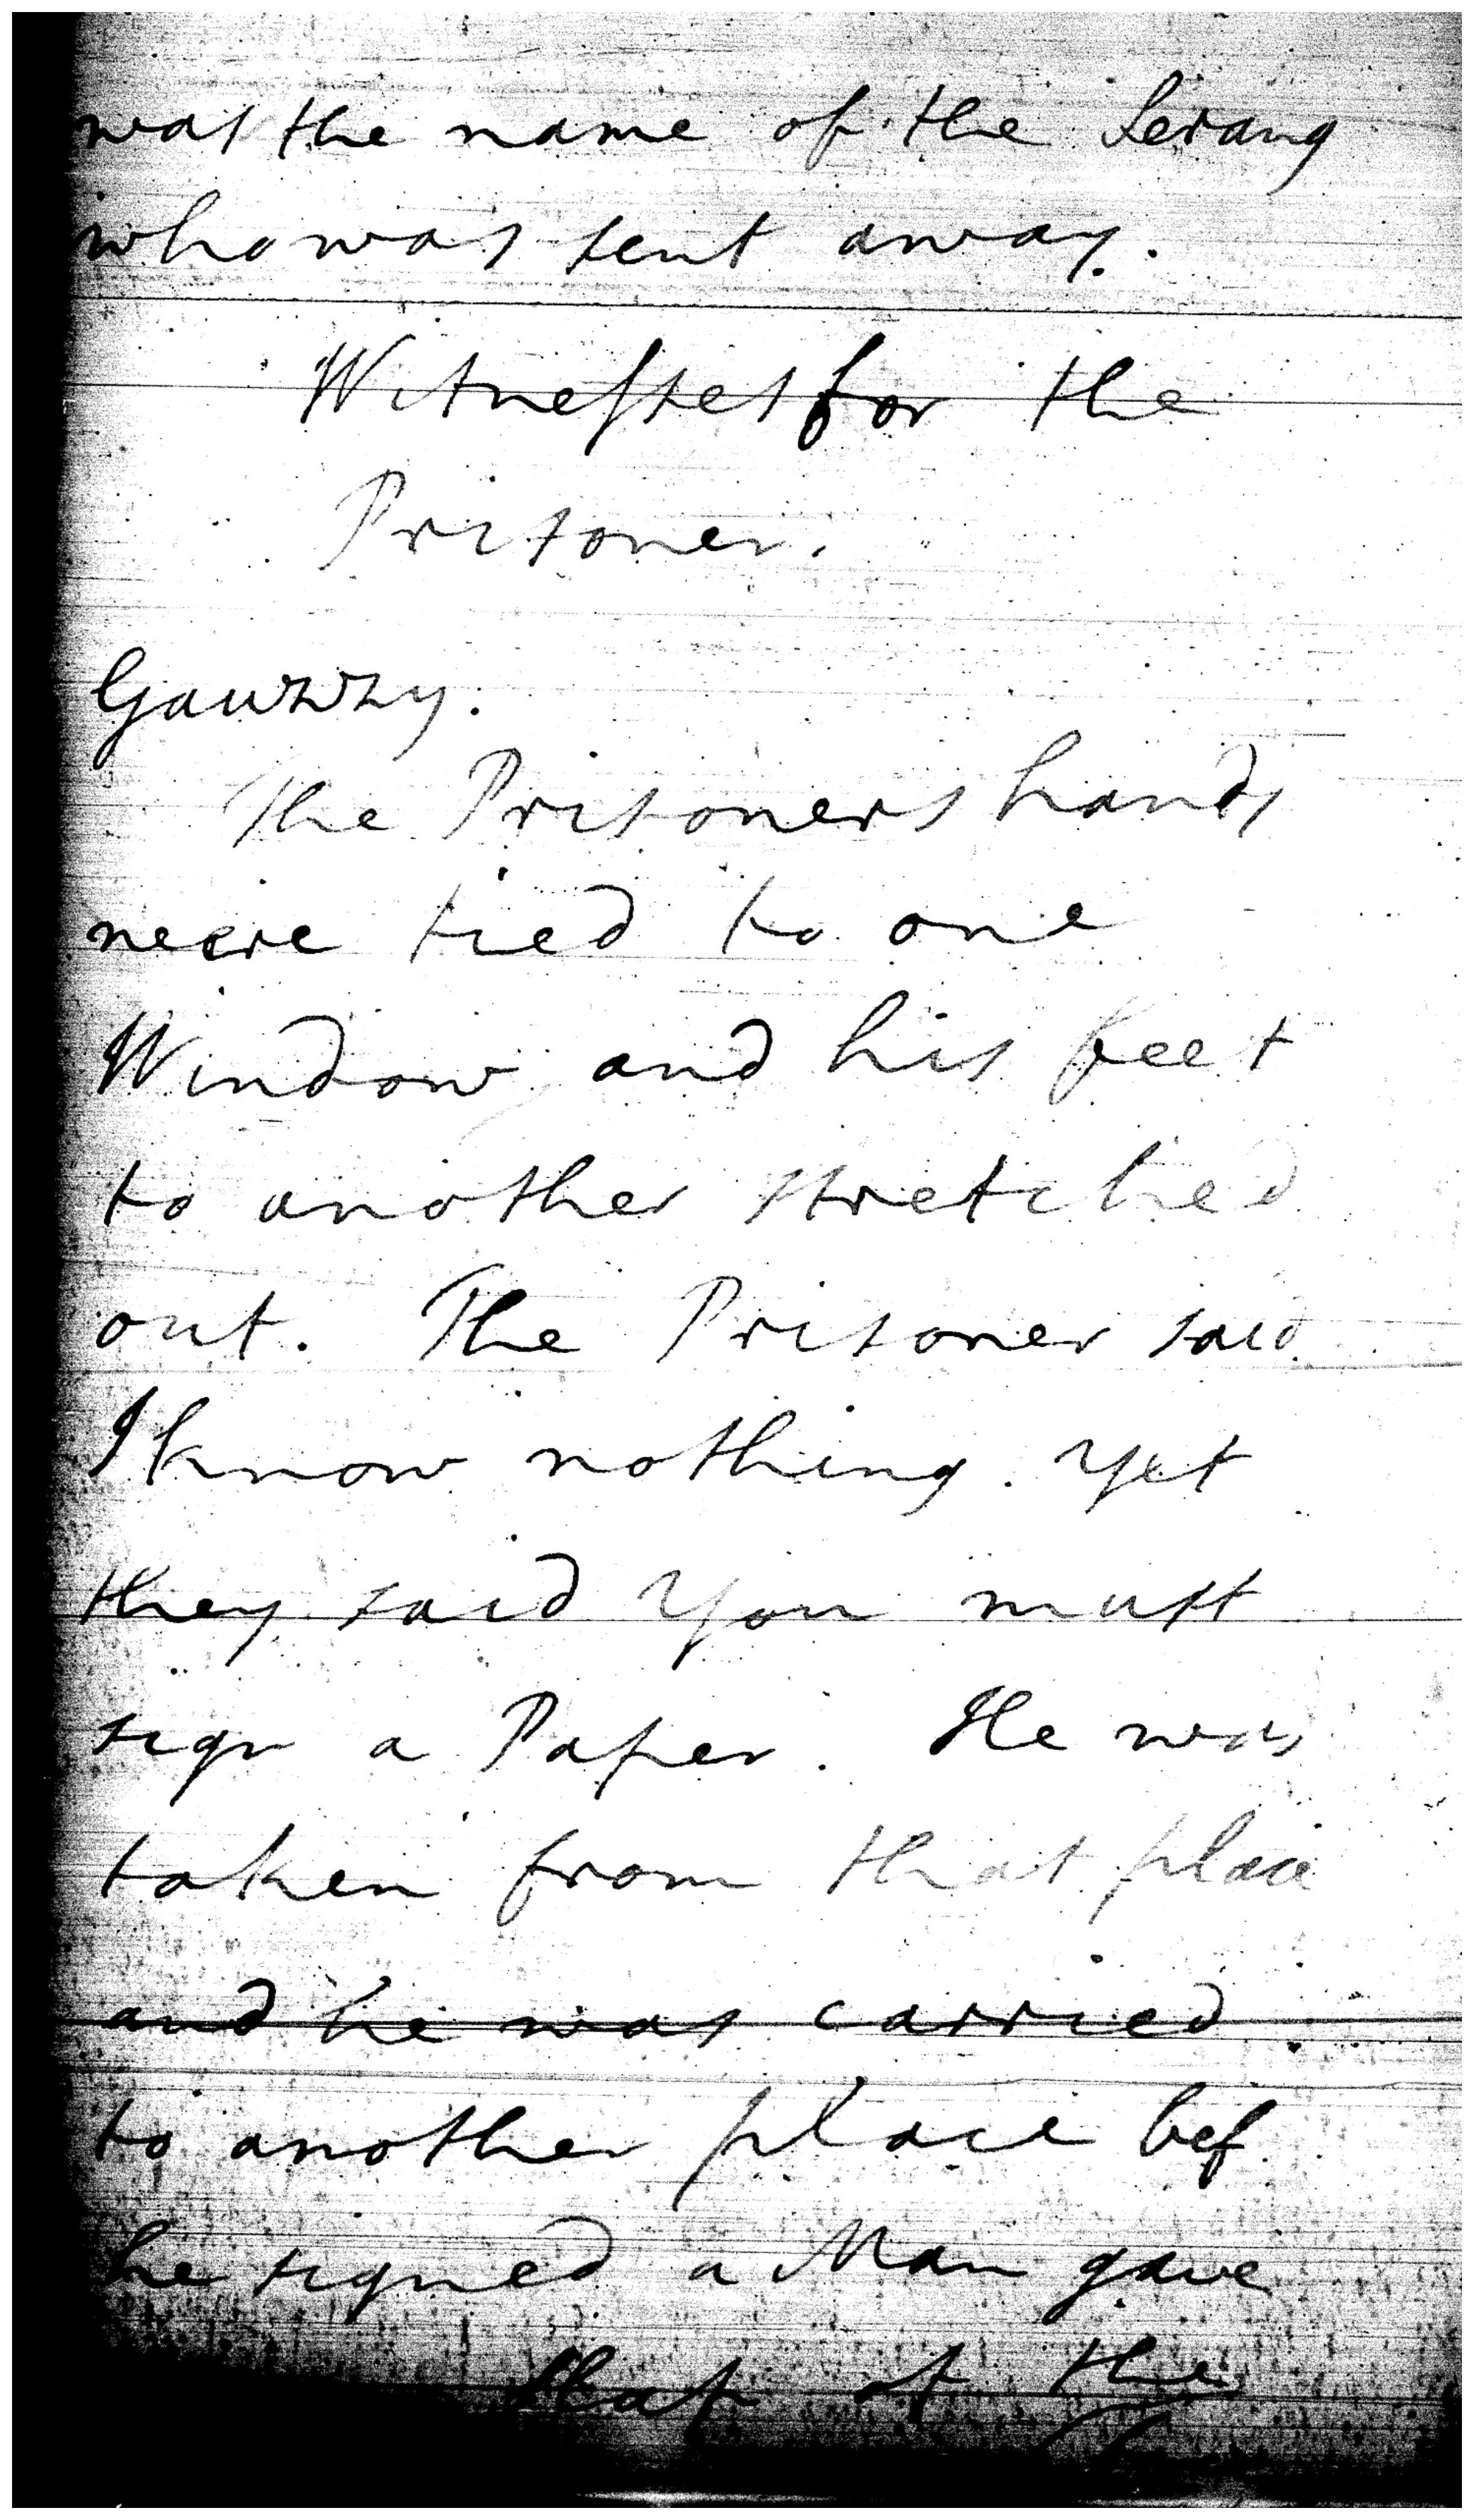 was the name of the Serang
who was sent away.
Witnesses for the
Prisoner.
Gauzzy.
The Prisoners hands
were tied to one
Window and his feet
to another stretched
out. The Prisoner said
I know nothing. Yet
they said You must
sign a Paper. He was
taken from that place
and he was carried
to another place bef
he signed a Man gave
the